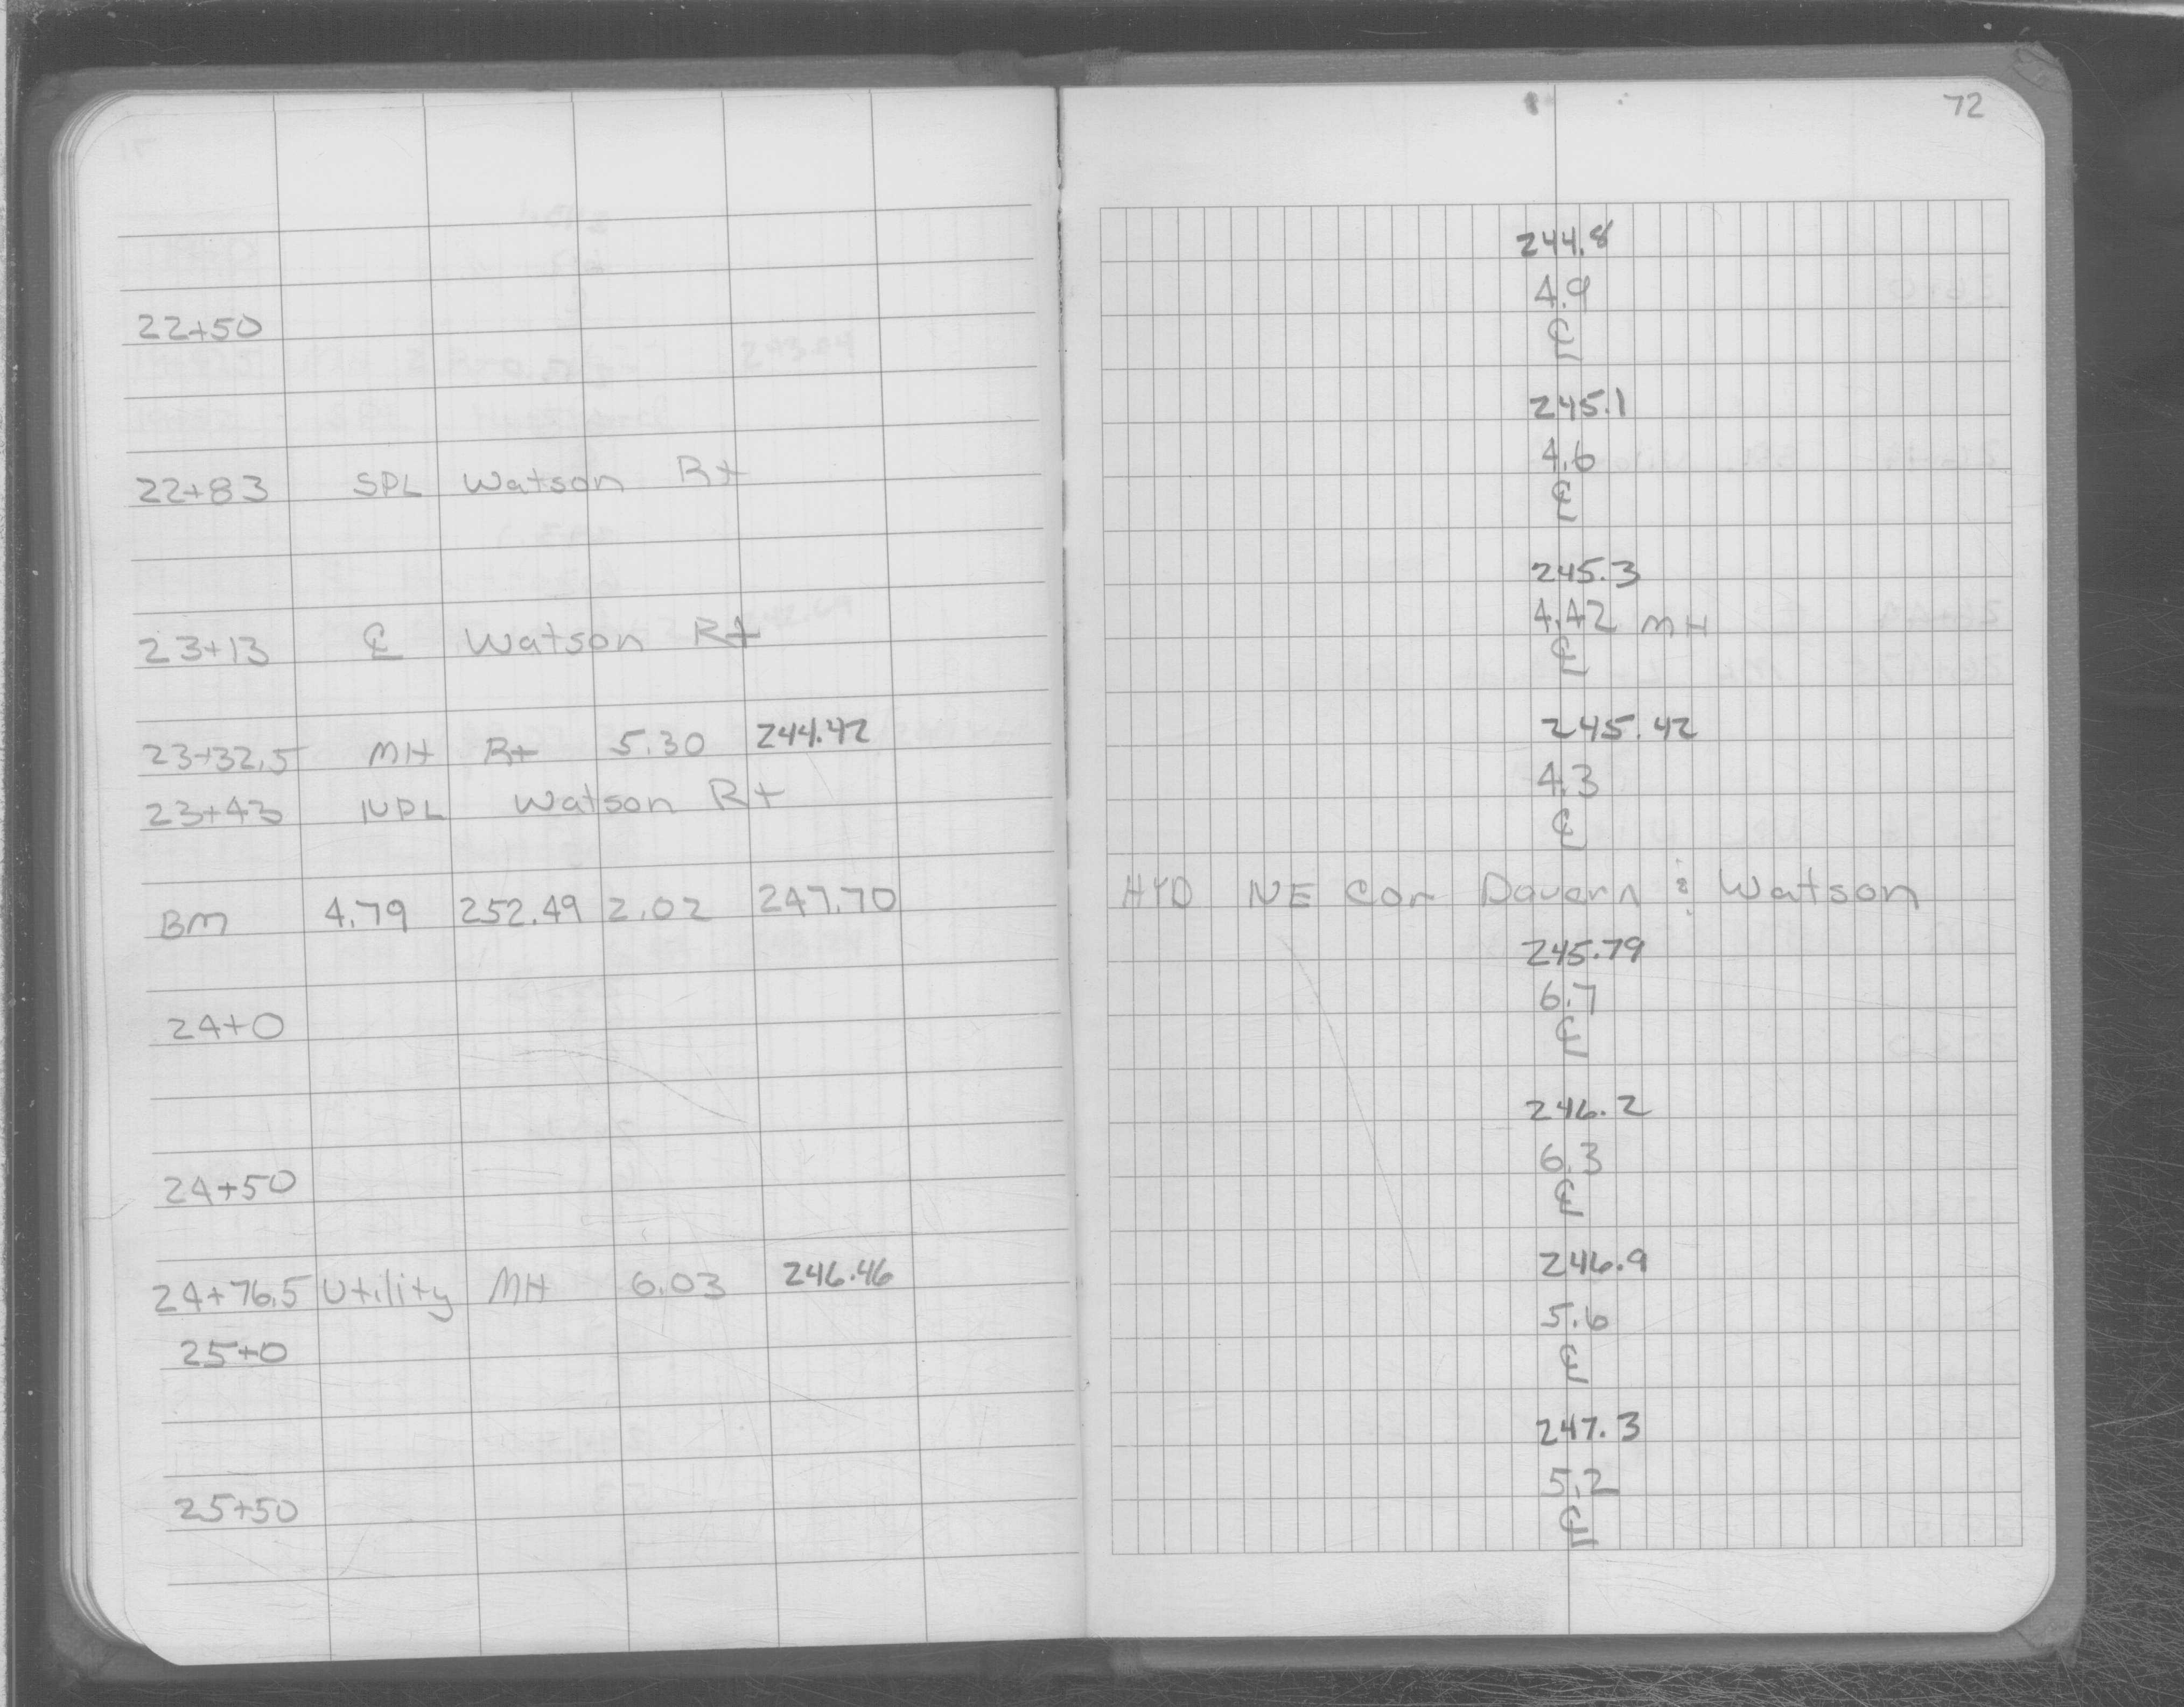 22+50
22+83 SPL Watson Rt
23+13 ℄ Watson Rt
23+32.5 MH Rt 5.30 244.42
23+43 NPL Watson Rt
BM 4.79 252.49 2.02 247.70
24+0
24+50
24+76.5 Utility MH 6.03 246.46
25+0
25+50
72
244.8
4.9
℄
245.1
4.6
℄
245.3
4.42 MH
℄
245.42
4.3
℄
HYD NE Cor Davern & Watson
245.79
6.7
℄
246.2
6.3
℄
246.9
5.6
℄
247.3
5.2
℄